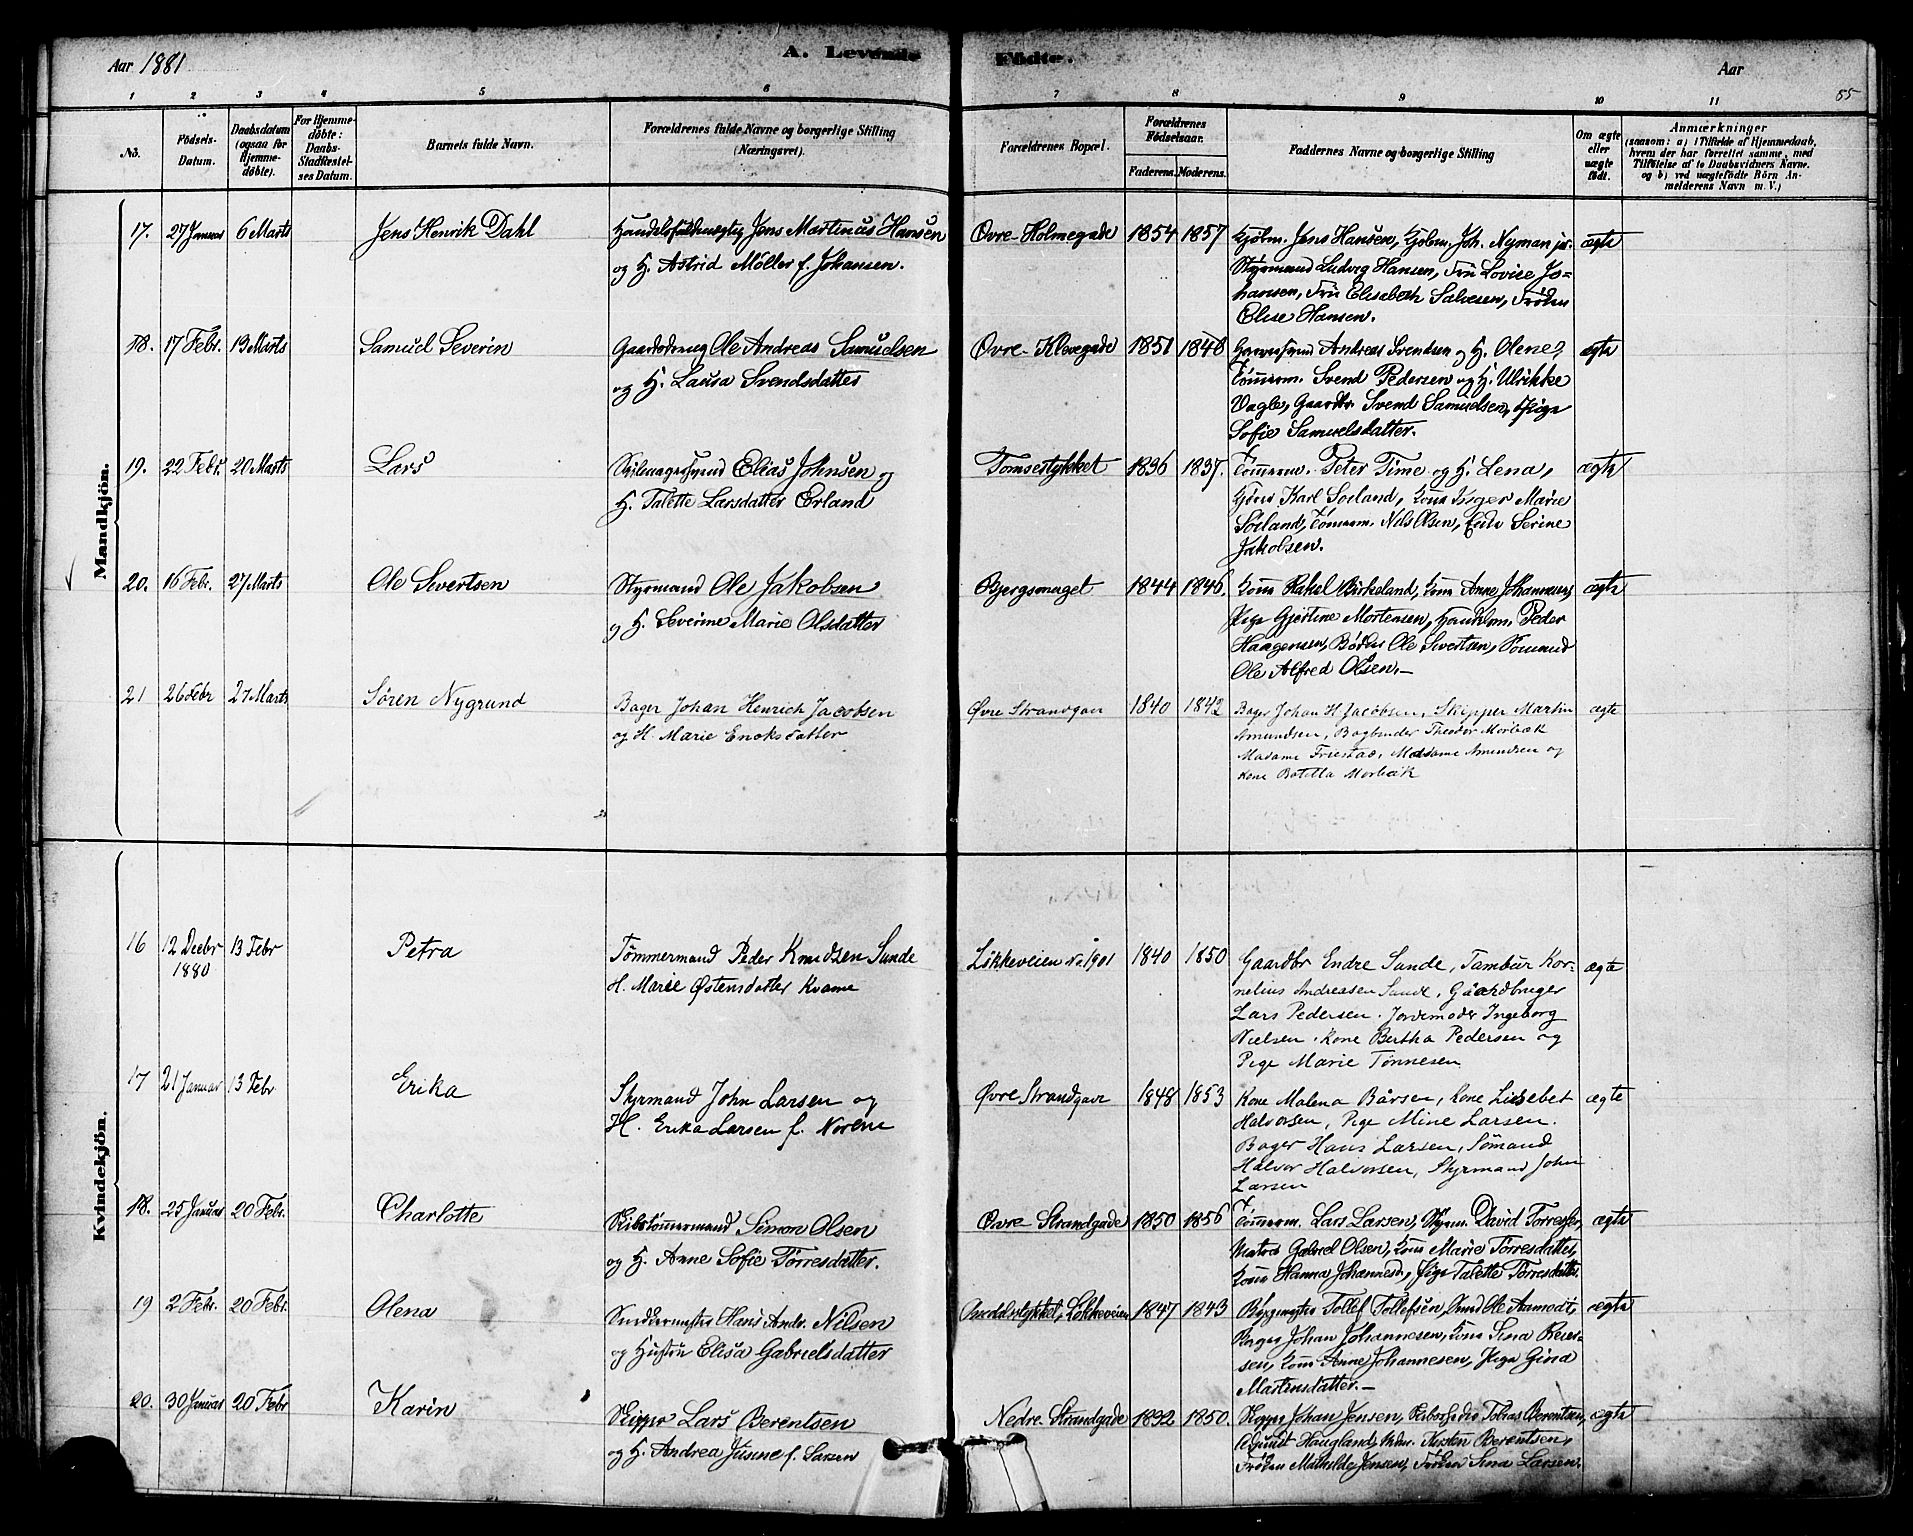 Aar 1881
A. Levende
Fødte.
Aar
55
1 2 3 4 5 6 7 8 9 10 11
No.
Fødsels-
Datum.
Daabsdatum
(ogsaa for
Hjemme-
døbte).
For Hjemme-
døbte:
Daabs-
Stadfæstel-
ses Datum.
Barnets fulde Navn.
Forældrenes fulde Navne og borgerlige Stilling
(Næringsvei).
Forældrenes Bopæl.
Forældrenes
Fødselsaar.
Faderens. Moderens.
Faddernes Navne og borgerlige Stilling
Om ægte
eller
uægte
født.
Anmærkninger
(saasom: a) i Tilfælde af Hjemmedaab,
hvem der har forrettet samme, med
Tilføielse af to Daabsvidners Navne.
og b) ved uægtefødte Börn An-
melderens Navn m. V.)
Mandkjön.
17. 27 Januar 6 Marts Jens Henrik Dahl
Handelsfuldmægtig Jens Martinus Hansen
og H. Astrid Möller f. Johansen.
Øvre Holmegade 1854 1857
Kjøbm. Jens Hansen, Kjøbm. Joh. Nyman jr.
Styrmand Ludvig Hansen, Fru Lovise Jo-
hansen, Fru Elisabeth Salvesen, Frøken
Elise Hansen.
ægte
18. 17 Febr. 13 Marts Samuel Severin
Gaardbrug Ole Andreas Samuelsen
og H. Laura Svendsdatter
Øvre Klevegade 1851 1848
Andreas Svendsen og H. Olene,
Tømmerm. Svend Pedersen og H. Ulrikke
Vagle, Gaardbr. Svend Samuelsen, Pige
Sofie Samuelsdatter.
ægte
19. 22 Febr. 20 Marts Lars
Elias Johnsen og
H. Talette Larsdatter Erland
Tomsestykket 1836 1837.
Tømmerm. Peter Time og H. Lena,
Karl Soeland, Kone Inger Marie
Soeland, Tømmerm. Nils Olsen, Enke Serine
Jakobsen.
ægte
20. 16 Febr. 27 Marts Ole Sivertsen
Styrmand Ole Jakobsen
og H. Severine Marie Olsdatter
Bjergsmaget 1844 1846.
Kone Rakel Birkeland, Kone Anne Johannesen,
Pige Gjertine Mortensen, Peder
Haagensen, Bøder Ole Sivertsen, Sømand
Ole Alfred Olsen.–
ægte
21 26 Febr 27 Marts Søren Nygrund
Bager Johan Henrich Jacobsen
og H. Marie Enoksdatter
Øvre Strandgaae 1840 1842
Bager Johan H Jacobsen, Skipper Martin
Amundsen, Bogbinder Theodor Morbæk
Madame Friestad, Madame Amundsen og
Kone Batella Morbæk
ægte
Kvindekjön.
16 12 Decbr 1880 13 Febr Petra
Tömmermand Peder Knudsen Sunde
H. Marie Østensdatter Kvame
Lökkeveien No 1901 1840 1850
Gaardbr Endre Sunde, Tambur Kor-
nelius Andreasen Sunde, Gaardbruger
Lars Pedersen. Jordemoder Ingeborg
Nielsen. Kone Bertha Pedersen og
Pige Marie Tönnesen
ægte
17 21 Januar 13 Febr Erika
Styrmand John Larsen og
H. Erika Larsen f. Norem
Øvre Strandgaae 1848 1853
Kone Malena Bårsen, Kone Lisebet
Halvorsen, Pige Mine Larsen.
Bager Hans Larsen, Sömand
Halvor Halvorsen, Styrmand John
Larsen
ægte
18. 25 Januar 20 Febr. Charlotte
Skibstømmermand Simon Olsen
og H. Anne Sofie Torresdatter.
Øvre Strandgade 1850 1856
Tømmerm. Lars Larsen, Styrm. David Torresen,
Matros Gabriel Olsen, Kone Marie Torresdatter,
Kone Hanna Johannesd., Pige Talette Torresdatter.
ægte
19 2 Febr. 20 Febr. Olena
Snedkermester Hans Andr. Nilsen
og Hustru Elisa Gabrielsdatter
Løkkeveien 1847 1843
Bygmester Tollef Tollefsen, Smed Ole Aamodt,
Bager Johan Johannesen, Kone Sina Reier-
sen, Kone Anne Johannesen, Pige Gina
Martensdatter.–
ægte
20. 30 Januar 20 Febr Karin
Skipper Lars Berentsen
og H. Andrea Junne f. Larsen
Nedre Strandgade 1832 1850.
Skipper Johan Jensen, Tobias Berentsen,
Adjunkt Haugland, Kirsten Berentsen,
Frøken Mathilde Jensen, Frøken Sina Larsen.
ægte